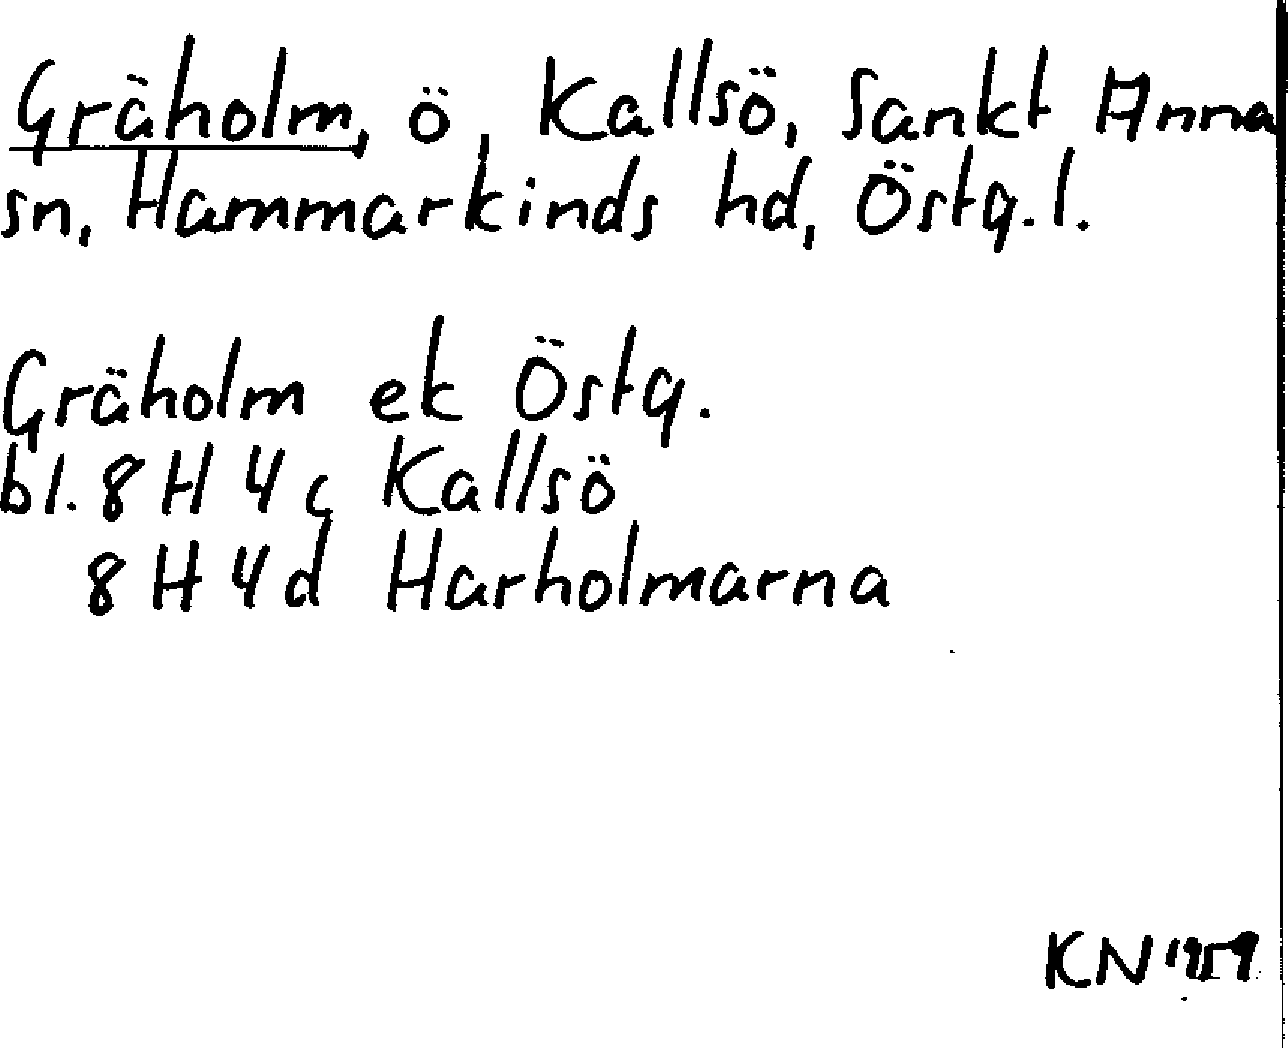 Gräholm, ö, Kallsö, Sankt Anna
sn, Hammarkinds hd, Östg.l.
Gräholm ek Östg.
bl. 8 H 4 c Kallsö
8 H 4 d Harholmarna
KN 1959